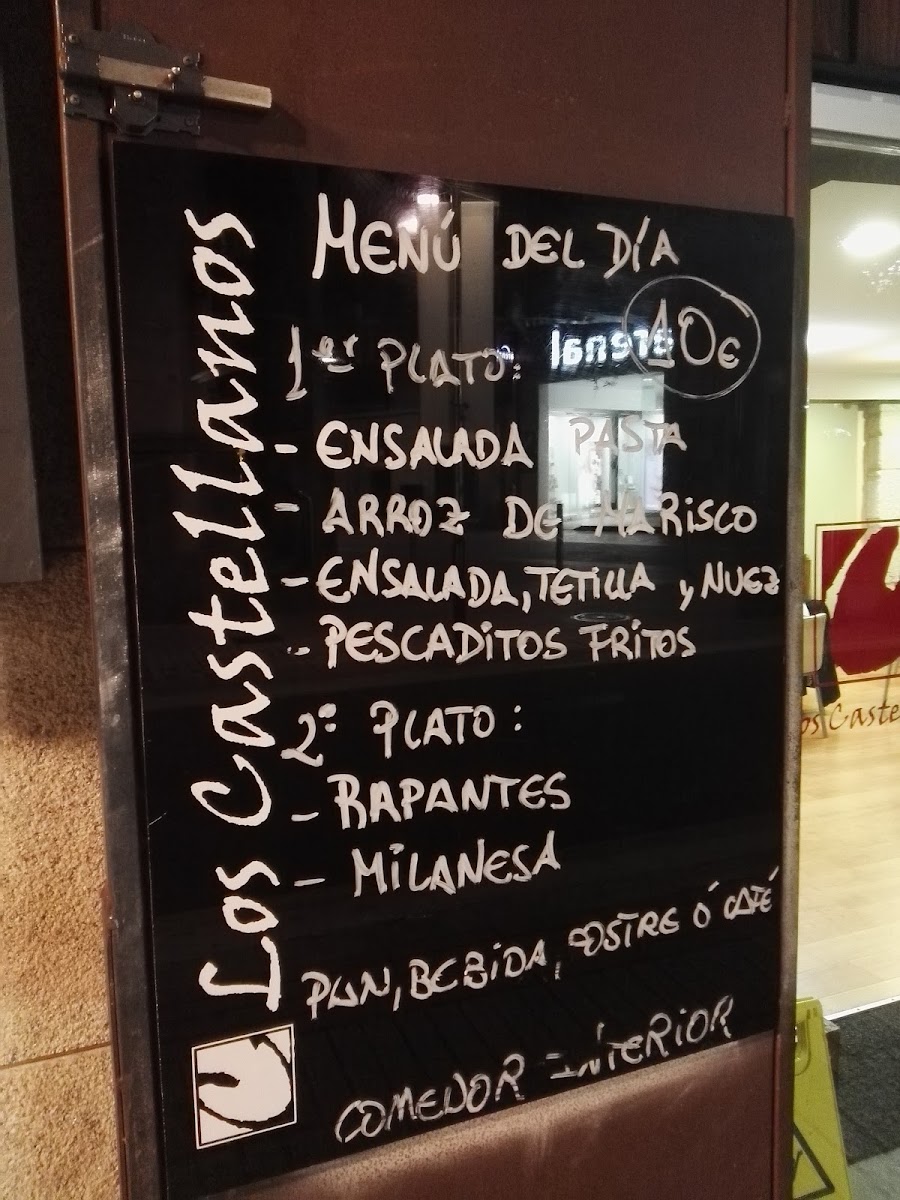 Los Castellanos
MENÚ DEL DÍA
10€
1er PLATO:
- ENSALADA PASTA
- ARROZ DE MARISCO
- ENSALADA, TETILLA y NUEZ
- PESCADITOS FRITOS
2º PLATO:
- RAPANTES
- MILANESA
PAN, BEBIDA, POSTRE Ó CAFÉ
COMEDOR INTERIOR
arenal
os Caste